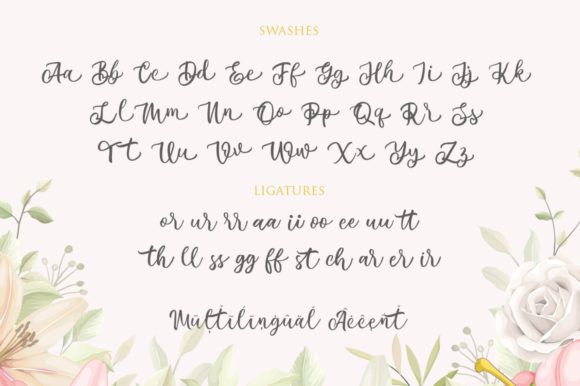 SWASHES
Aa Bb Cc Dd Ee Ff Gg Hh Ii Jj Kk
Ll Mm Nn Oo Pp Qq Rr Ss
Tt Uu Vv Ww Xx Yy Zz
LIGATURES
or ur rr aa ii oo ee uu tt
th ll ss gg ff st ch ar er ir
Multilingual Accent